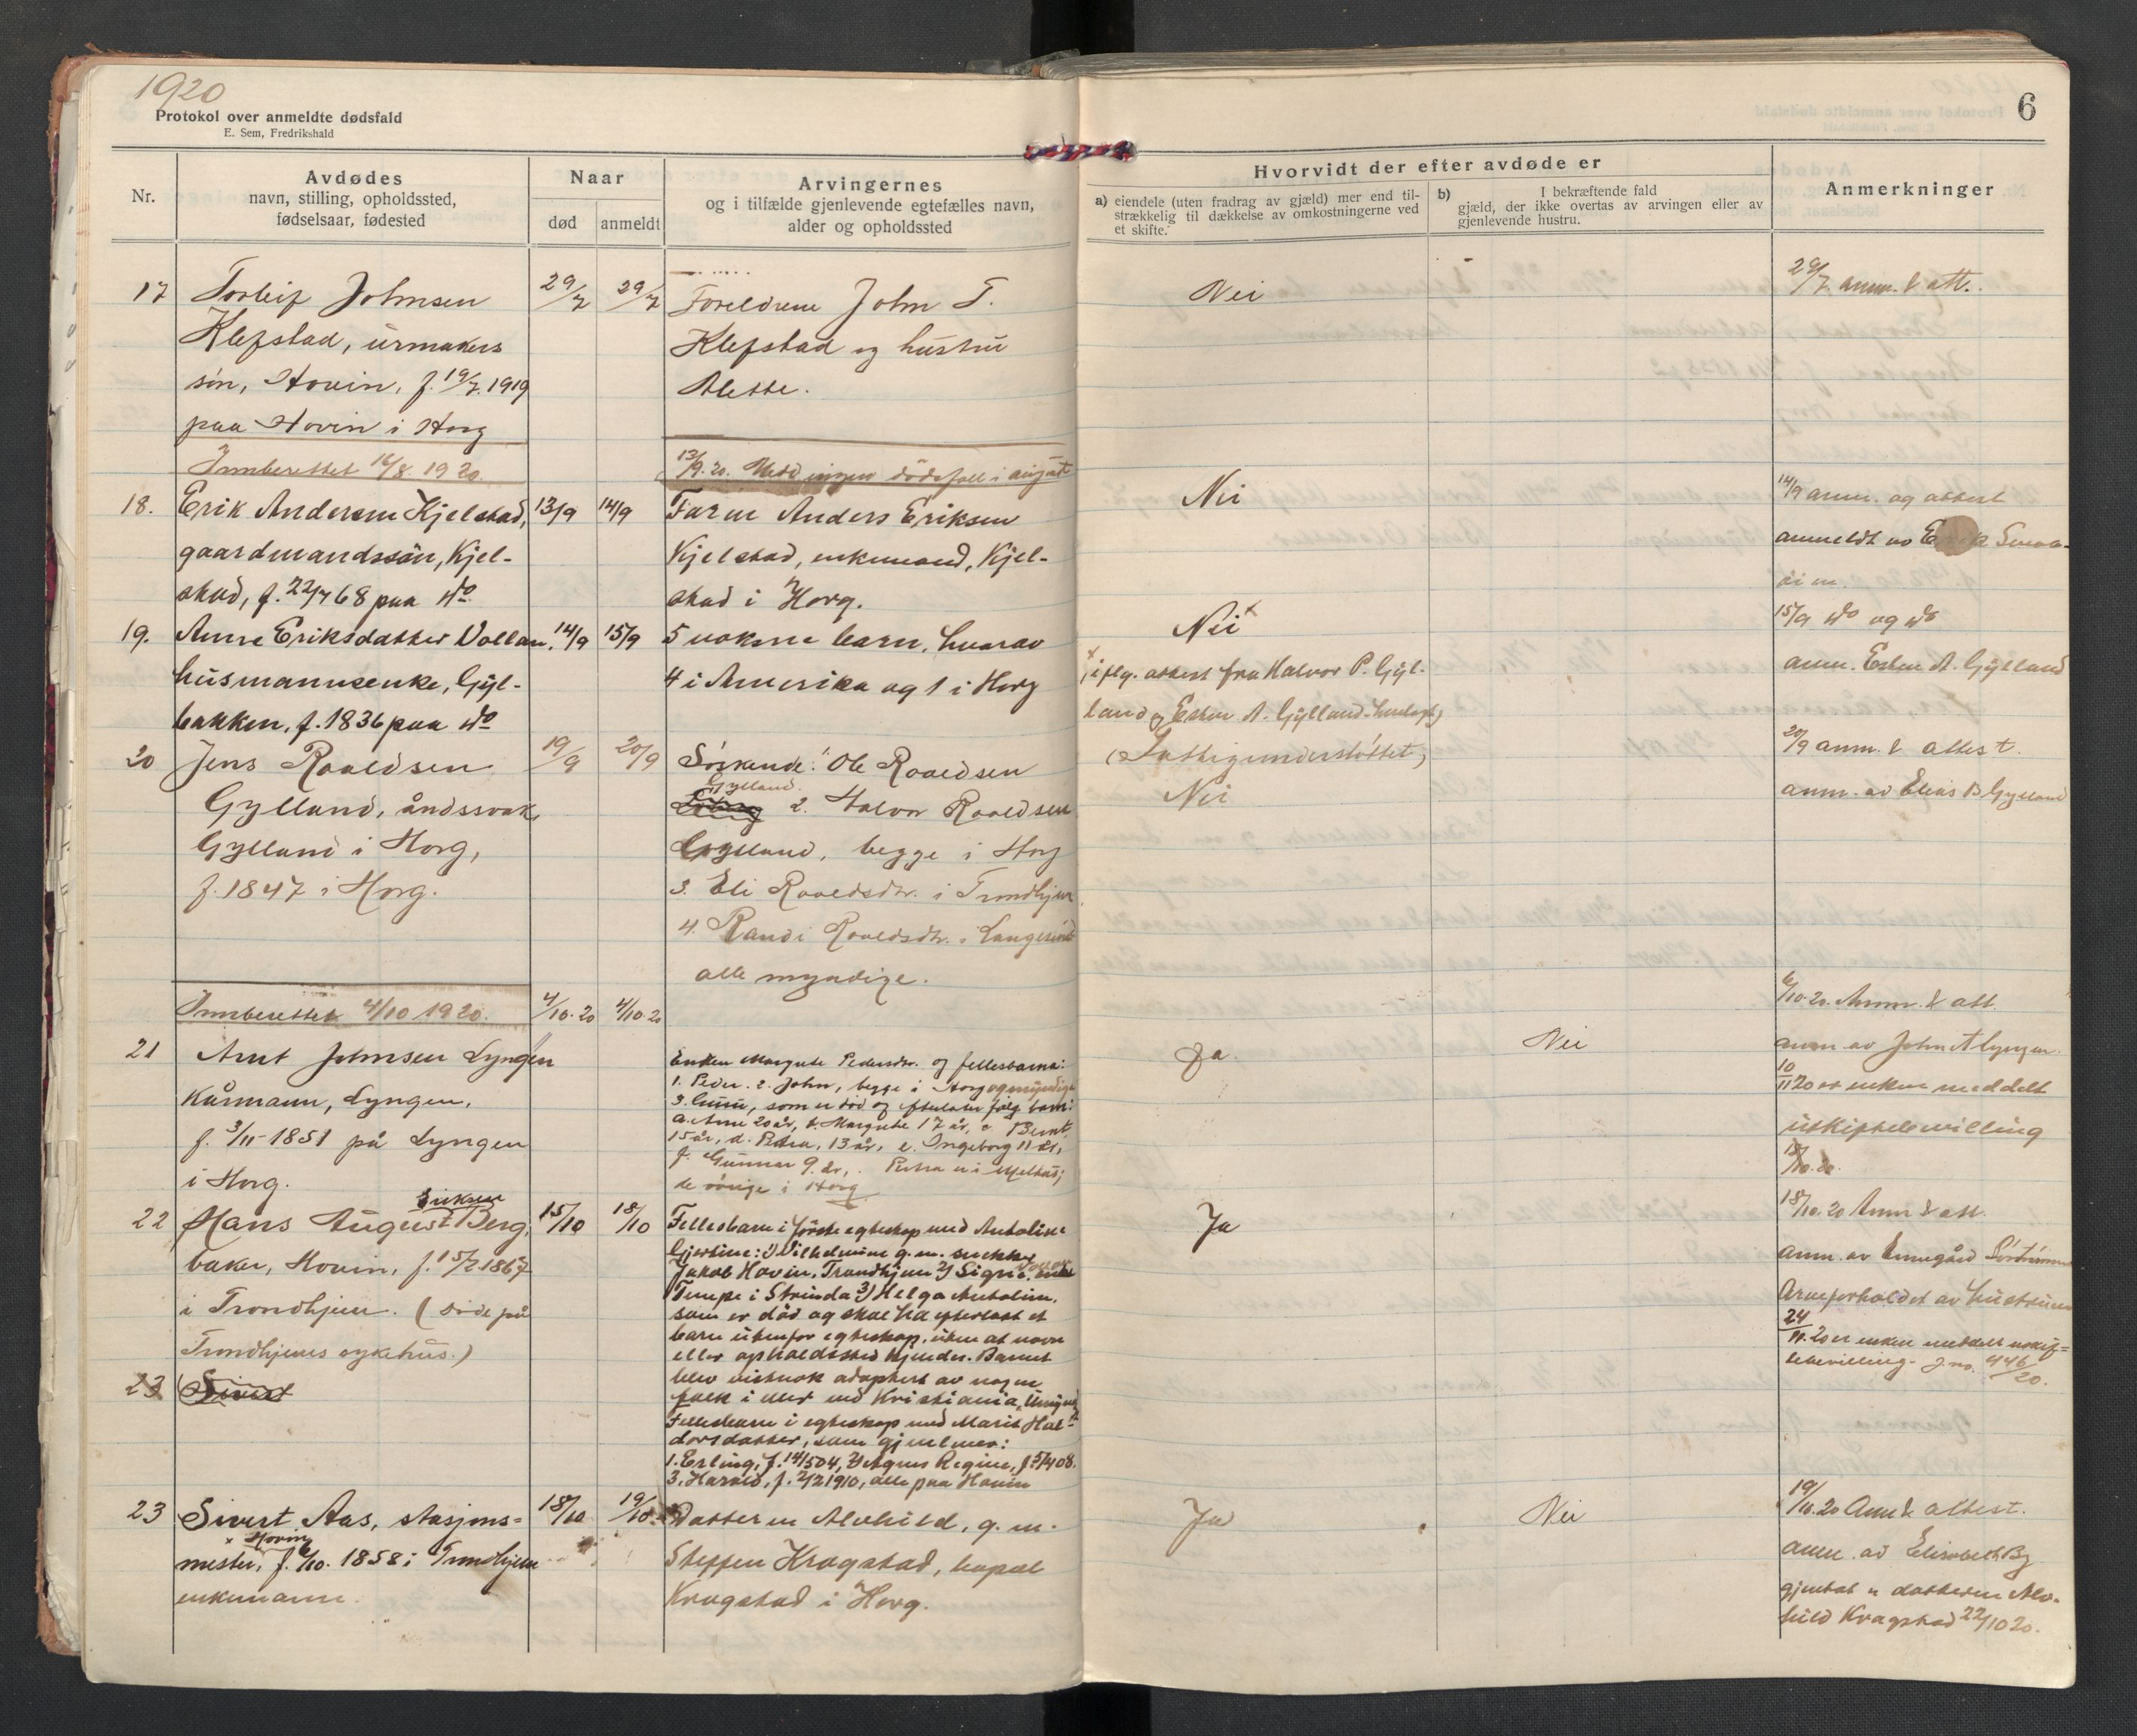 1920
Protokol over anmeldte dødsfald
E. Sem, Fredrikshald
6
Nr.
Avdødes
navn, stilling, opholdssted,
fødselsaar, fødested
Naar
død
anmeldt
Arvingernes
og i tilfælde gjenlevende egtefælles navn,
alder og opholdssted
Hvorvidt der efter avdøde er
a) eiendele (uten fradrag av gjæld) mer end til-
strækkelig til dækkelse av omkostningerne ved
et skifte.
b) I bekræftende fald
gjæld, der ikke overtas av arvingen eller av
gjenlevende hustru.
Anmerkninger
17
Torleif Johnsen
Klefstad, urmakers
søn, Hovin, f. 19/7. 1919
paa Hovin i Horg
29/7
29/7
Foreldrene John T.
Klefstad og hustru
Alette.
Nei
29/7 anm. & att.
Innberettet 16/8. 1920.
13/9. 20. Medd ingen dödsfall i august
18.
Erik Andersen Kjelstad,
gaardmandssön, Kjel-
stad, f. 22/7 68 paa do.
13/9
14/9
Faren Anders Eriksen
Kjelstad, enkemand, Kjel-
stad i Horg.
Nei
14/9 anm. og attest
anmeldt av
19.
Anne Eriksdatter Vollan,
husmannsenke, Gyl-
bakken, f. 1836 paa do
14/9
15/9
5 voksne barn, hvorav
4 i Amerika og 1 i Horg
Nei x
x iflg. attest fra Halvor P. Gyl-
land og Esten A. Gylland
(Fattigunderstöttet)
15/9 do og do
anm. Esten A. Gylland
20
Jens Roaldsen
Gylland, åndssvak,
Gylland i Horg,
f. 1847 i Horg.
19/9
20/9
Söskende: Ole Roaldsen
Gylland.
2. Halvor Roaldsen
Gylland, begge i Horg
3. Eli Roaldsdtr. i Trondhjem
4. Randi Roaldsdtr. i
alle myndige.
Nei
20/9 anm. & attest.
anm. av Elias B Gylland
Innberettet 4/10 1920.
4/10. 20
4/10. 20
21
Arnt Johnsen Lyngen
Kårmann, Lyngen,
f. 3/11-1851 på Lyngen
i Horg.
Enken Margrete Pedersdtr. og fellesbarna:
1. Peder. 2. John, begge i Horg og myndige
3. som er död og efterlater fölg barn:
a. Anne 20 år, b. Margrete 17 år, c Bernt
15 år, d. Petra, 13 år, e. Ingeborg 11 år,
f. Gunnar 9 år, Petra er i Melhus;
de övrige i Horg
Ja
Nei
6/10. 20. Anm. & att.
anm av John A Lyngen.
10/11 20 er enken meddelt
uskiftebevilling
22
Eriksen
Hans August Berg,
baker, Hovin, f. 15/2 1867
i Trondhjem. (döde på
Trondhjems sykehus.)
15/10
18/10
Fellesbarn i förste egteskap med Antoline
Gjertine: 1) Vilhelmine g. m. snekker
Jakob Hovin, Trondhjem 2) Signe,
Tempe i Strinda 3) Helga Antoline,
som er död og skal ha efterlatt et
barn utenfor egteskap, uten at navn
eller opholdssted kjendes. Barnet
blev vistnok adoptert av nogen
folk i eller ved Kristiania,
Fellesbarn i egteskap med Marit Hal-
dorsdatter, som gjenlever:
1. Erling, f. 14/5 04, 2) Agnes Regine, f 5/4 08.
3. Harald, f. 2/2 1910, alle paa Hovin
Ja
18/10. 20 Anm & att.
anm. av
Arveforholdet av hustruen
24/11. 20 er enken meddelt uskif-
tebevilling. J. no. 446/20.
23
Sivert
23
Sivert Aas, stasjons-
x Hovin
mester, f. 6/10. 1858 i Trondhjem
enkemann.
18/10
19/10
Datteren Alvhild, g. m.
Steffen Kragstad,
Kragstad i Horg.
Ja
Nei
19/10. 20 Anm & attest.
anm. av Elisabeth By
gjenpart datteren Alv-
hild Kragstad 22/10 20.